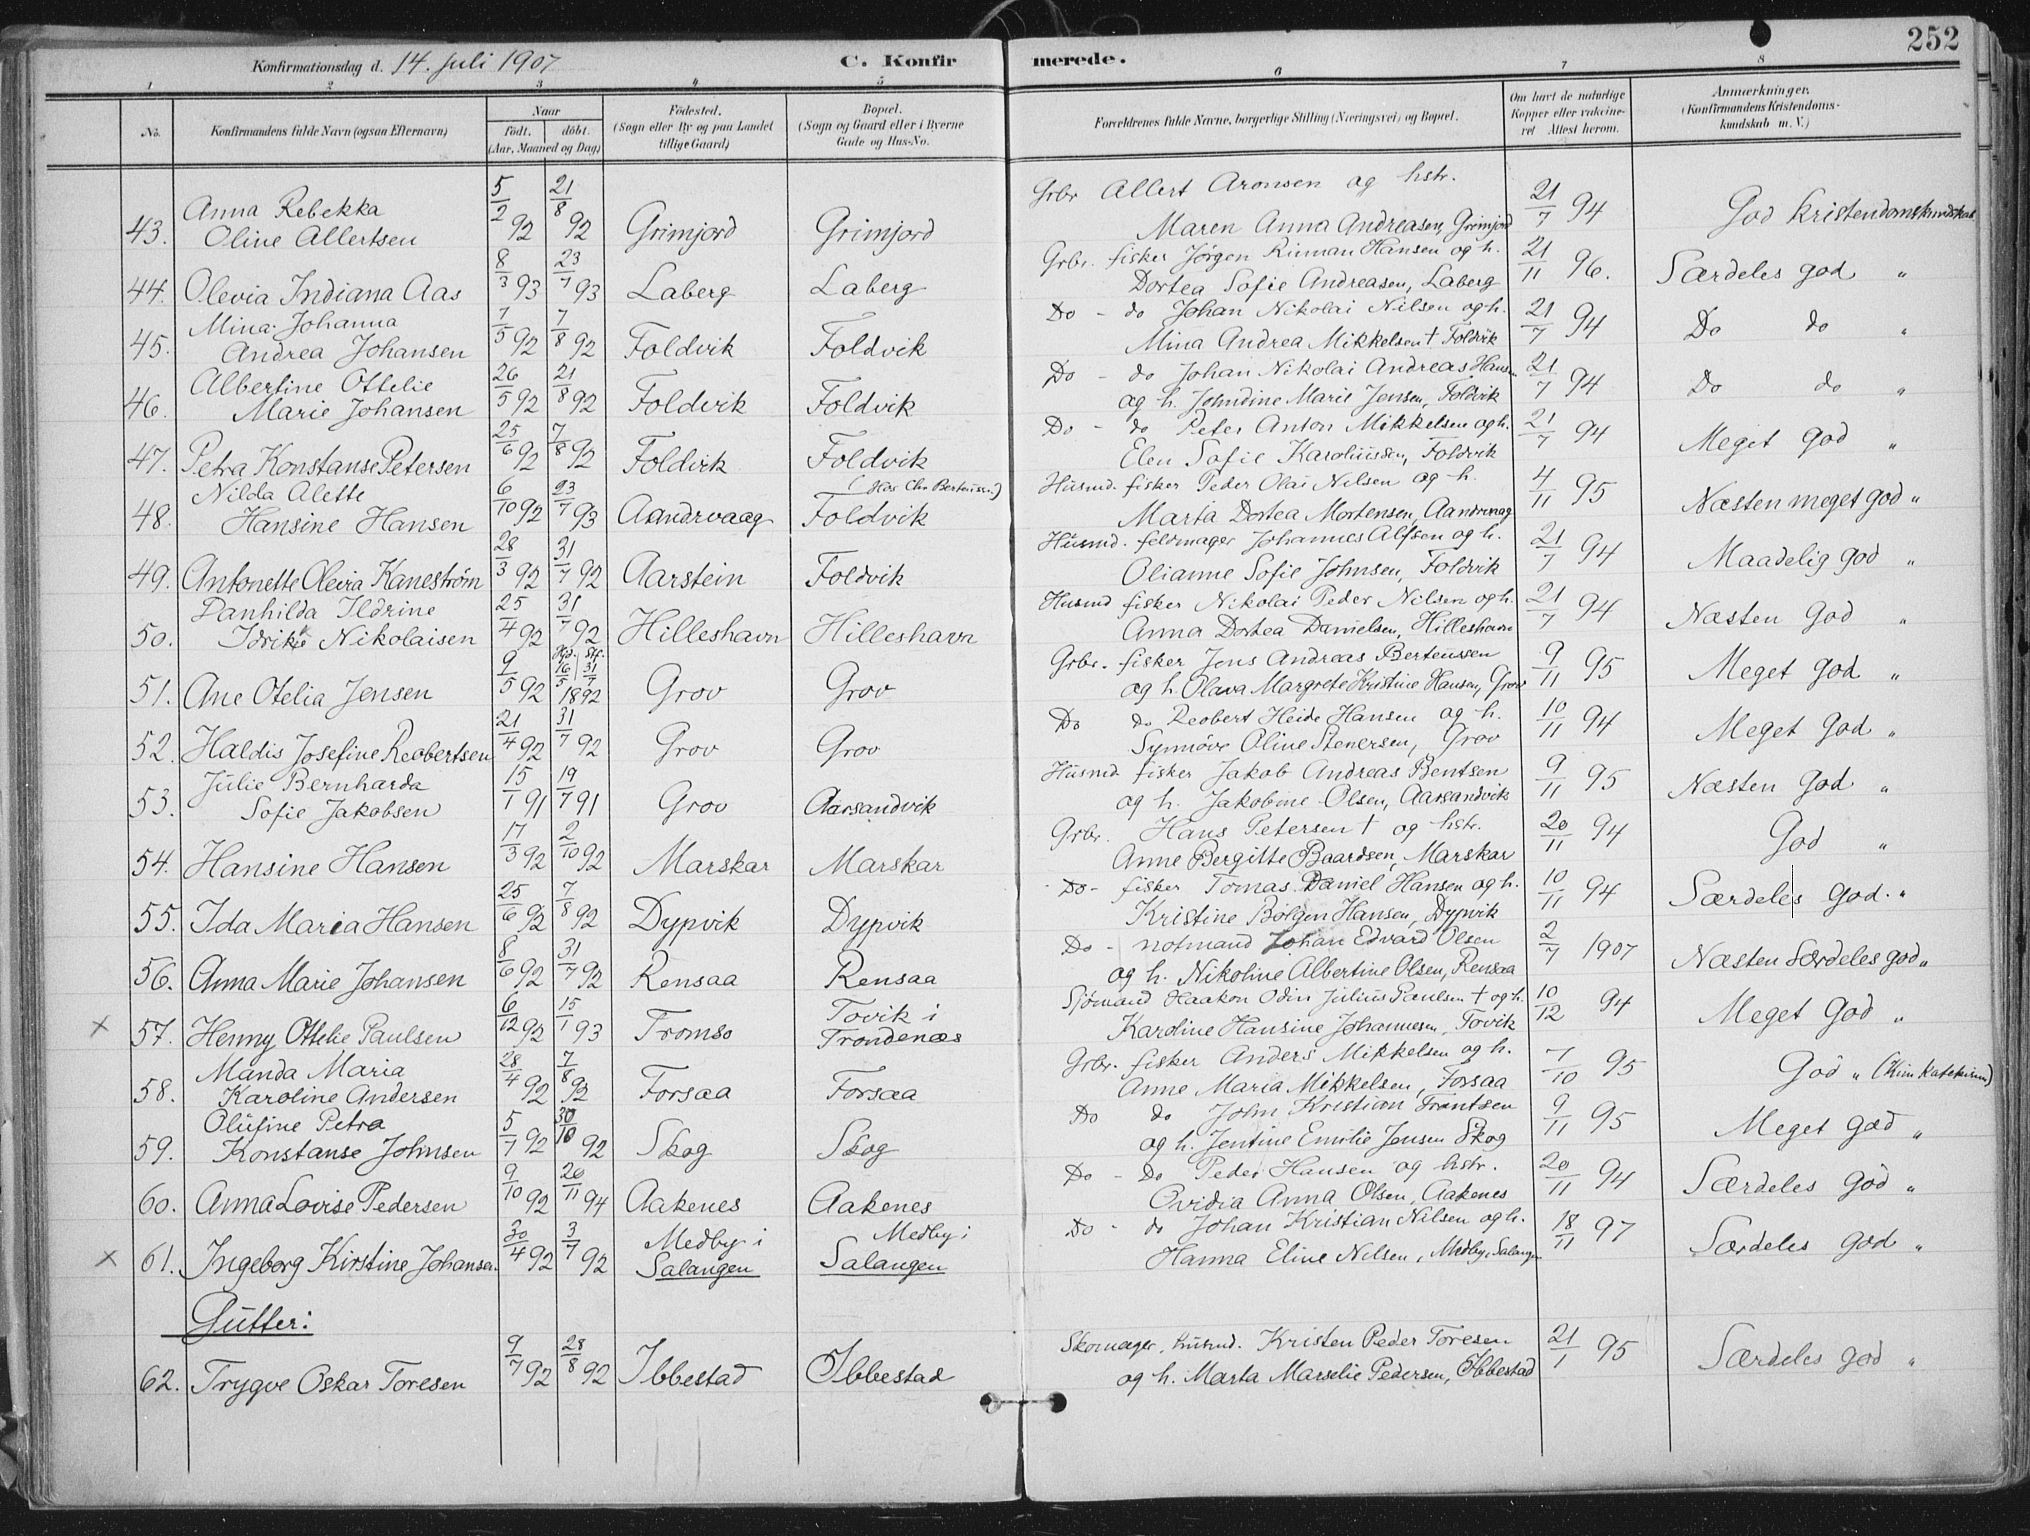 252
Konfirmationsdag d. 14. Juli 1907 C. Konfirmerede.
1 2 3 4 5 6 7 8
No. Konfirmandens fulde Navn (ogsaa Efternavn) Naar födt. döbt. (Aar, Maaned og Dag) Födested. (Sogn eller By og paa Landet tillige Gaard) Bopæl. (Sogn og Gaard eller i Byerne Gade og Hus-No. Forældrenes fulde Navne, borgerlige Stilling (Næringsvei) og Bopæl. Om havt de naturlige Kopper eller vaccineret Attest herom. Anmærkninger. (Konfirmandens Kristendomskundskab m. V.)
43. Anna Rebekka Oline Allertsen 5/2 92 21/8 92 Grimjord Grimjord Grbr Allert Aronsen og hstr. Maren Anna Andreasen, Grimjord 21/7 94 God kristendomskundskab
44. Olevia Indiana Aas 8/3 93 23/7 93 Laberg Laberg Grbr. fisker Jørgen Rinman Hansen og h. Dortea Sofie Andreasen, Laberg 21/11 96. Særdeles god "
45. Mina Johanna Andrea Johansen 7/5 92 7/8 92 Foldvik Foldvik Do - do Johan Nikolai Nilsen og h. Mina Andrea Mikkelsen † Foldvik 21/7 94 Do do "
46. Albertine Ottelie Marie Johansen 26/5 92 21/8 92 Foldvik Foldvik Do - do Johan Nikolai Andreas Hansen og h. Johndine Marie Jensen, Foldvik 21/7 94 Do do "
47. Petra Konstanse Petersen 25/6 92 7/8 92 Foldvik Foldvik Do - do Peter Anton Mikkelsen og h. Elen Sofie Karoliusen, Foldvik 21/7 94 Meget god "
48. Nilda Alette Hansine Hansen 6/10 92 23/7 93 Aandrvaag (Hos Chr Berteussen) Foldvik Husmd. fisker Peder Olai Nilsen og h. Marta Dortea Mortensen, Aandrvaag 4/11 95 Næsten meget god "
49. Antonette Oleira Kanestrøm 28/3 92 31/7 92 Aarstein Foldvik Husmd. feldmager Johannes Alfsen og h. Olianne Sofie Johnsen, Foldvik 21/7 94 Maadelig god "
50. Danhilda Ildrine Idrikke Nikolaisen 25/4 92 31/7 92 Hilleshavn Hilleshavn Husmd fisker Nikolai Peder Nilsen og h. Anna Dortea Danielsen, Hilleshavn 21/7 94 Næsten God "
51. Ane Otelia Jensen 9/5 92 Hjd. 16/5 Stf. 31/7 1892 Grov Grov Grbr. fisker Jens Andreas Berteussen og h. Olava Margrete Kristine Hansen, Grov 9/11 95 Meget god "
52. Haldis Josefine Reobertsen 21/4 92 31/7 92 Grov Grov Do do Reobert Heide Hansen og h. Synnöve Oline Stenersen, Grov 10/11 94 Meget god "
53. Julie Bernharda Sofie Jakobsen 15/1 91 19/7 91 Grov Aarsandvik Husmd. fisker Jakob Andreas Bentsen og h. Jakobine Olsen, Aarsandvik 9/11 95 Næsten God "
54. Hansine Hansen 17/3 92 2/10 92 Marskar Marskar Grbr. Hans Petersen † og hstr. Anne Bergitte Baardsen, Marskar 20/11 94 God "
55. Ida Maria Hansen 25/6 92 7/8 92 Dypvik Dypvik Do - fisker Tomas Daniel Hansen og h. Kristine Bolgen Hansen, Dypvik 10/11 94 Særdeles God. "
56. Anna Marie Johansen 8/6 92 31/7 92 Rensaa Rensaa Do - notmand Johan Edvard Olsen og h. Nikoline Albertine Olsen, Rensaa 2/7 1907 Næsten Særdeles god "
× 57. Henny Ottelie Paulsen 6/12 92 15/1 93 Tromsø Tovik i Trondenæs Sjømand Haakon Odin Julius Paulsen † og h. Karoline Hansine Johannesen, Tovik 10/12 94 Meget God "
58. Manda Maria Karoline Andersen 28/4 92 7/8 92 Forsaa Forsaa Grbr. fisker Anders Mikkelsen og h. Anne Maria Mikkelsen, Forsaa 7/10 95 God " (Kun katekism)
59. Olufine Petra Konstanse Johnsen 5/7 92 30/10 92 Skog Skog Do do John Kristian Frantsen og h. Jentine Emilie Jensen Skog 9/11 95 Meget god "
60. Anna Lovise Pedersen 9/10 92 26/11 94 Aakenes Aakenes Do - Do Peder Hansen og hstr. Ovidia Anna Olsen, Aakenes 20/11 94 Særdeles God "
× 61. Ingeborg Kirstine Johansen. 30/4 92 3/7 92 Medby i Salangen Medby i Salangen Do - do Johan Kristian Nilsen og h. Hanna Eline Nilsen, Medby, Salangen 18/11 97 Særdeles God "
Gutter:
62. Trygve Oskar Toresen 9/7 92 28/8 92 Ibbestad Ibbestad Skomager, husmd. Kristen Peder Toresen og h. Marta Marselie Pedersen, Ibbestad 21/1 95 Særdeles god "